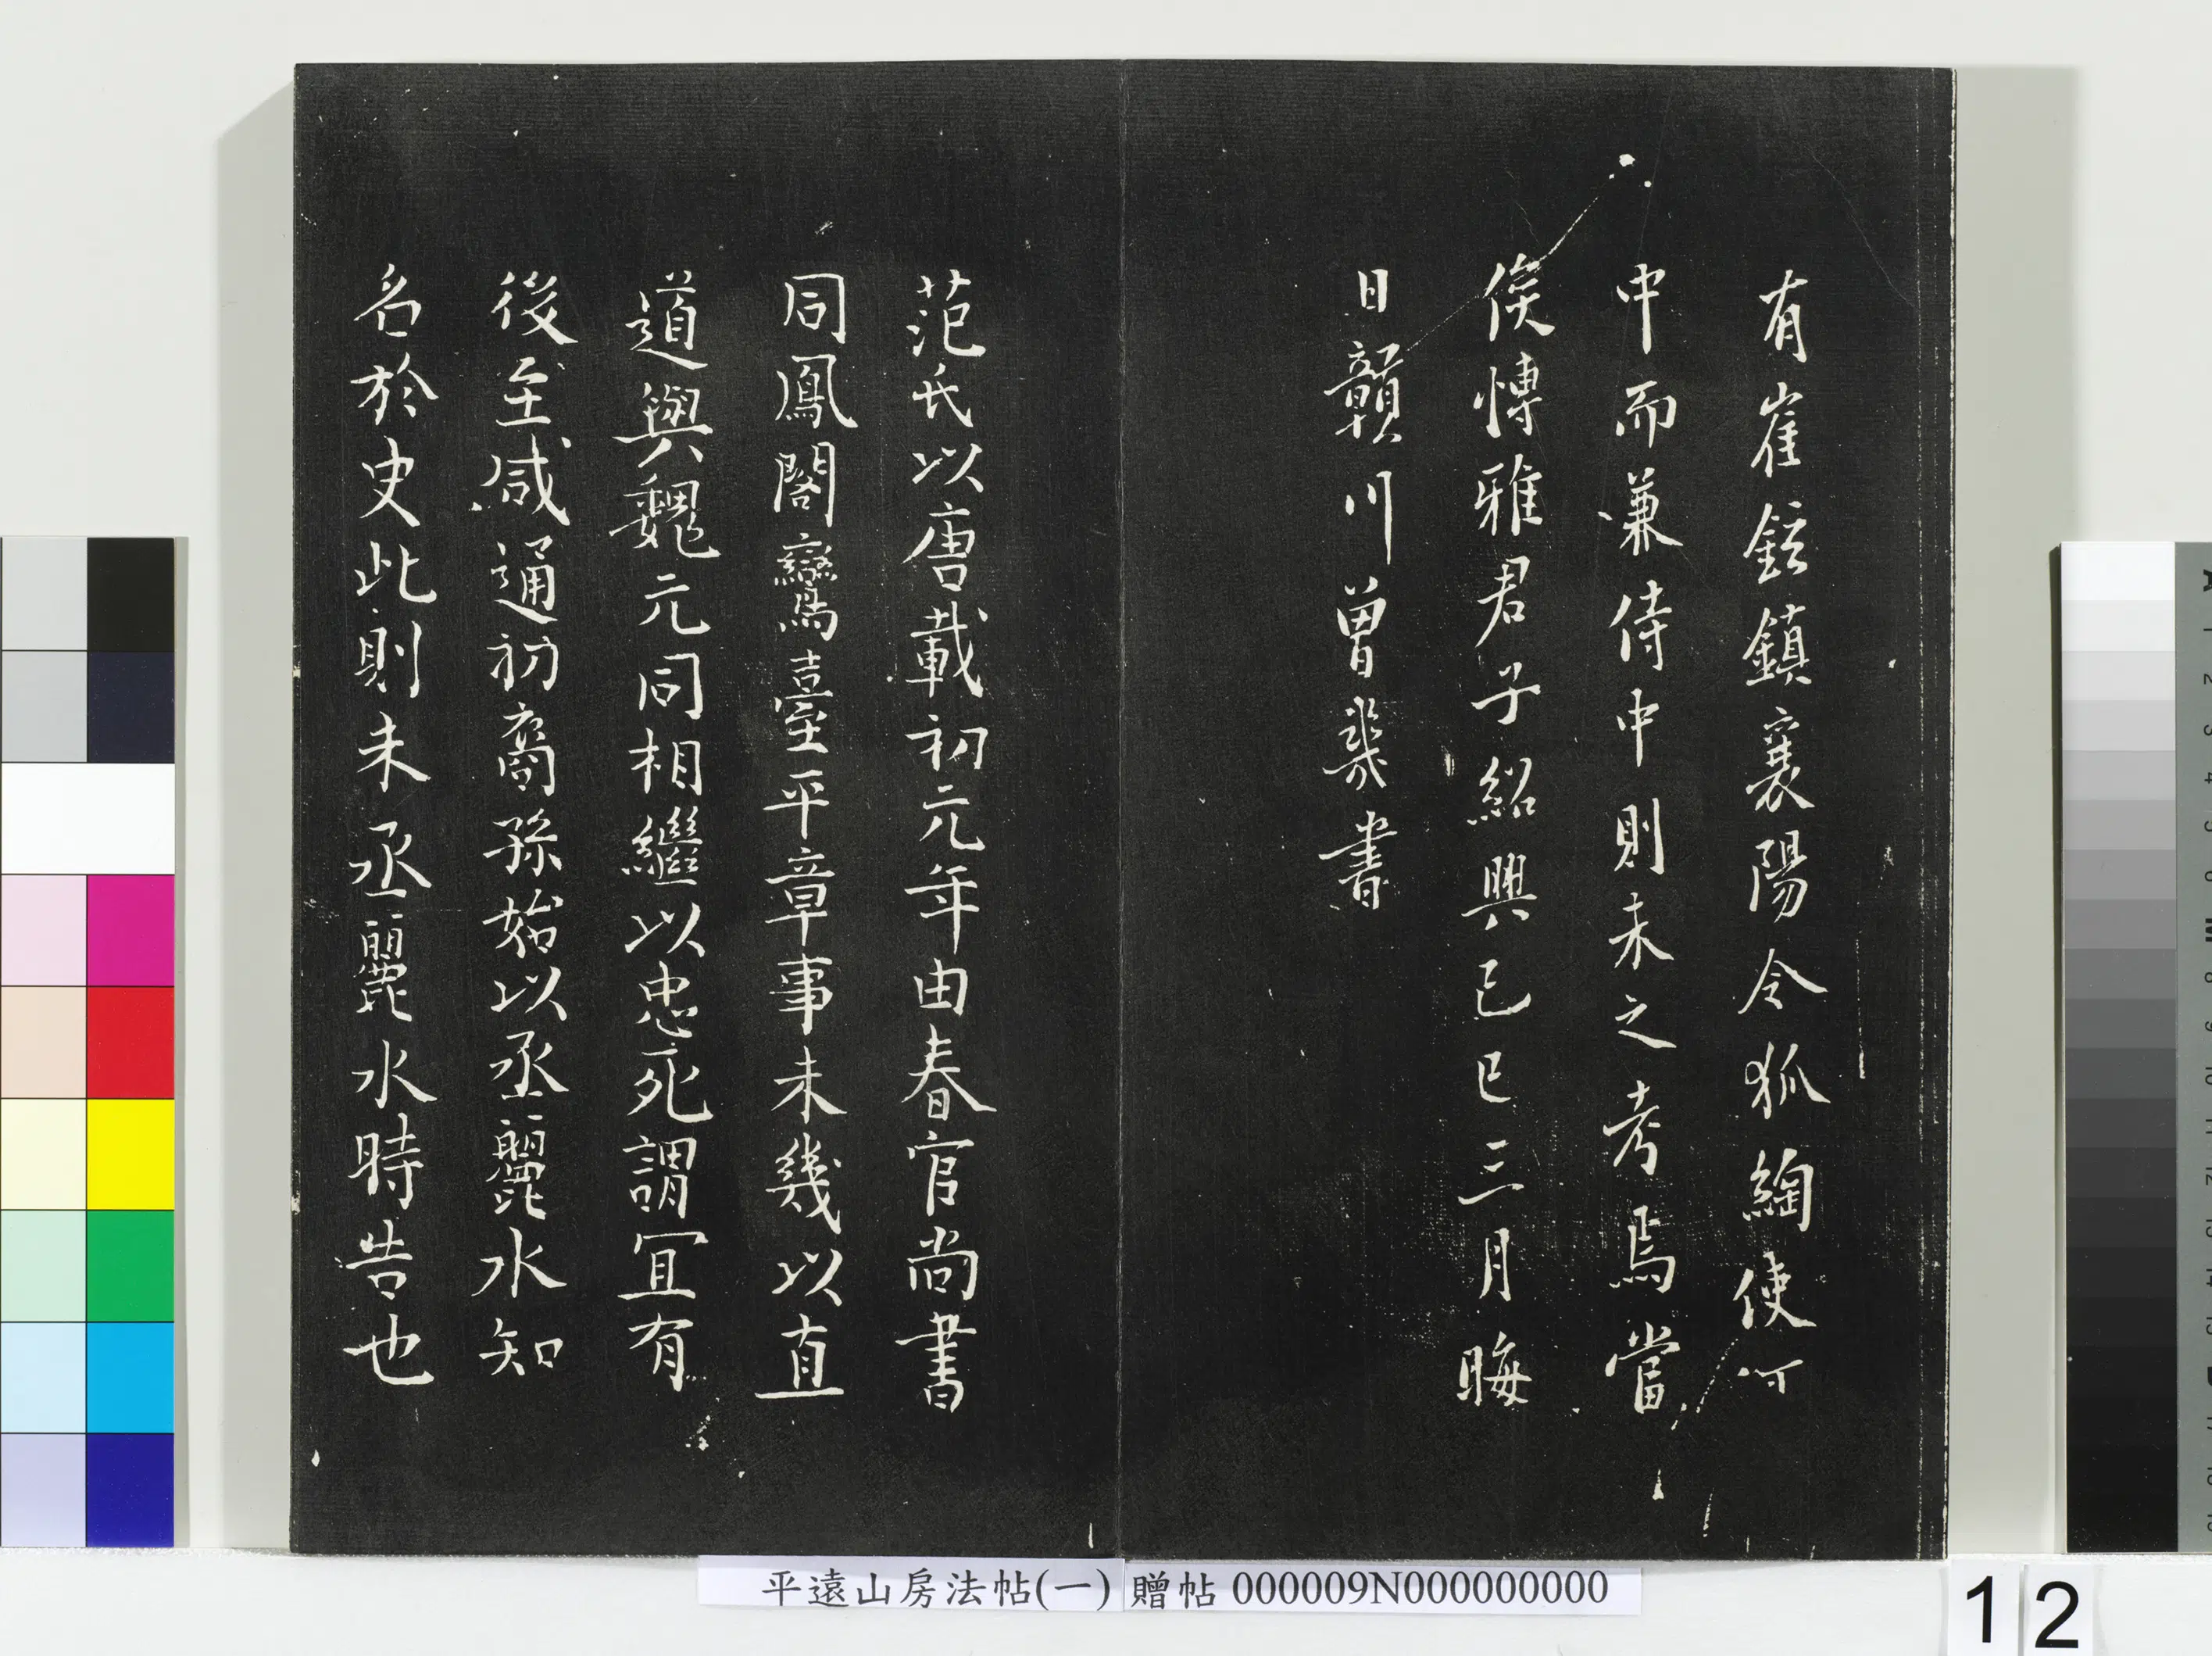 有崔鉉鎮襄陽令狐綯使河
中而兼侍中則未之考焉當
俟博雅君子紹興己巳三月晦
日贛川曾裘書
范氏以唐載初元年由春官尚書
同鳳閣鸞臺平章事未幾以直
道與魏元同相繼以忠死謂宜有
後至咸通初裔孫始以丞麗水知
名於史此則未丞麗水時告也
平遠山房法帖(一) 贈帖 000009N000000000
12